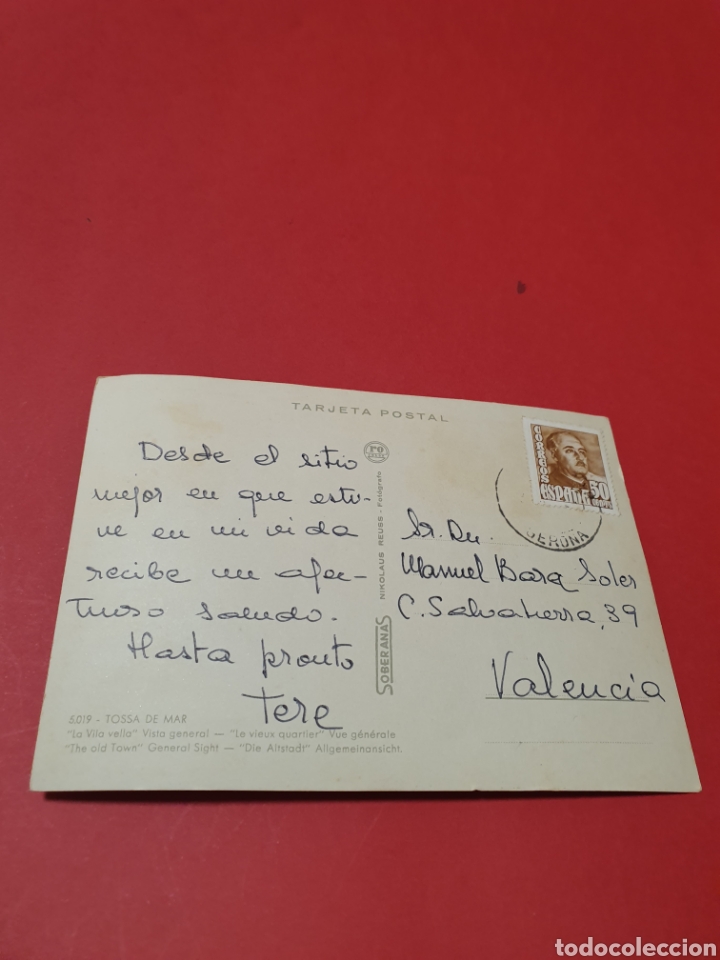 TARJETA POSTAL
Desde el sitio
mejor en que estu-
ve en mi vida
recibe un afec-
tuoso saludo.
Hasta pronto
Tere
5.019 - TOSSA DE MAR
"La Vila vella" Vista general — "Le vieux quartier" Vue générale
"The old Town" General Sight — "Die Altstadt" Allgemeinansicht.
SOBERANAS
NIKOLAUS REUSS - Fotógrafo
CORREOS
ESPAÑA
50
CENTS
GERONA
Sr. Dn.
Manuel Bara Soler
C. Salvatierra, 39
Valencia
todocoleccion